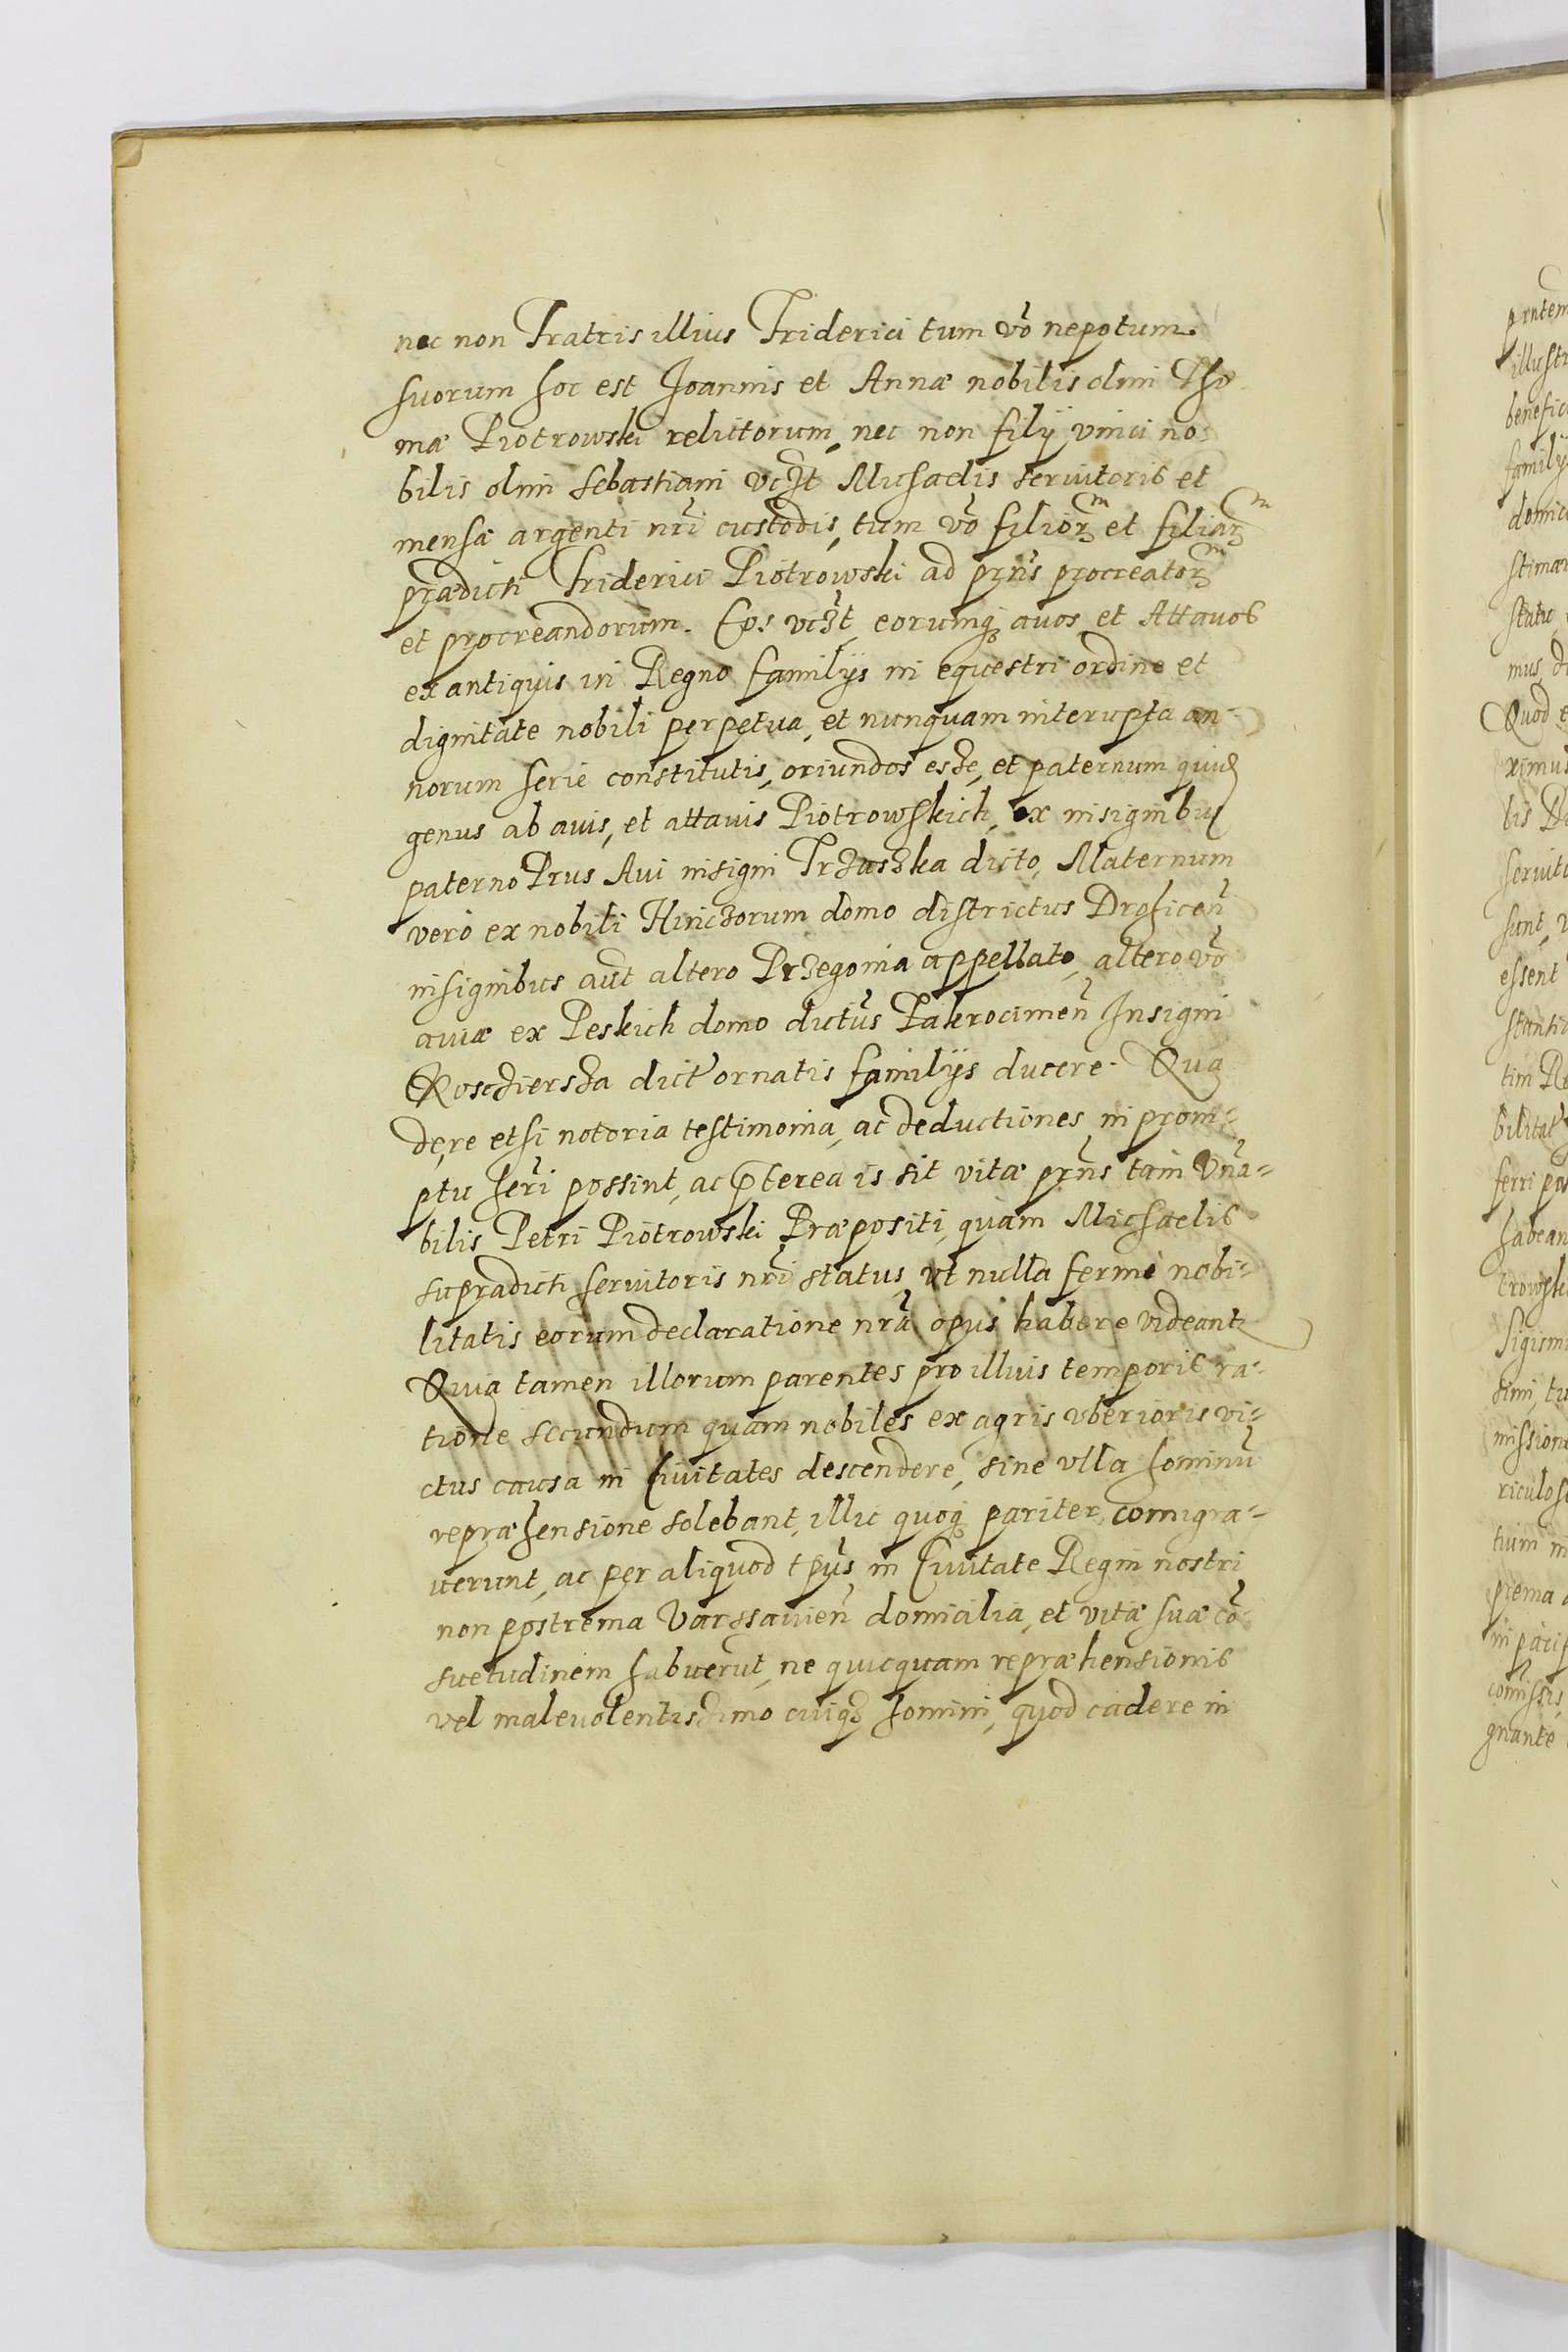 nec non Fratris illius Friderici tum vo nepotum
suorum hoc est Joannis et Annæ nobilis olim Tho
mæ Piotrowski relictorum, nec non filij vnici no
bilis olim Sebastiani vczt Michaelis seruitoris et
mensæ argenti nri custodis, tum vo filiorm et filiarm
prædicti Friderici Piotrowski ad prns procreatorm
et procreandorum. Eos vczt, eorumq avos et Attauos
ex antiquis in Regno familijs in equestri ordine et
dignitate nobili perpetua, et nunquam interupta an-
norum serie constitutis, oriundos esse, et paternum quid
genus ab auis, et attauis Piotrowskich, ex insignibus
paterno Prus Aui insigni Trzaszka dicto, Maternum
vero ex nobili Hinczorum domo districtus Drohicen
insignibus aut altero Przegonia appellato, altero vo
auiæ ex Peskich domo dictus Zakrocimen Insigni
Roscziersza dict ornatis familijs ducere. Qua
de re etsi notoria testimonia, ac deductiones in prom-
ptu heri possint, ac pterea is sit vitæ prns tam Vna-
bilis Petri Piotrowski Præpositi, quam Michaelis
supradicti seruitoris nri status, vt nulla ferme nobi-
litatis eorum declaratione nra opus habere videant
Quia tamen illorum parentes pro illius temporis ra-
tione secundum quam nobiles ex agris vberioris vi-
ctus causa in Ciuitates descendere, sine vlla hominu
repræhensione solebant, illic quoq pariter comigra-
uerunt, ac per aliquod tpus in Ciuitate Regni nostri
non postrema Varssauien domicilia, et vitæ suæ co-
suetudinem habuerut, ne quicquam repræhensionis
vel maleuolentissimo cuiq homini, quod cadere in
prntem
illustr
benefic
familij
domic
stimon
statu,
mus, d
Quod e
ximus
lis
seruito
sunt, v
essent
tim Re
bilitat
ferri
habean
trowski
Sigism
simi, tu
mission
riculos
tium in
prema
comissis
gnante